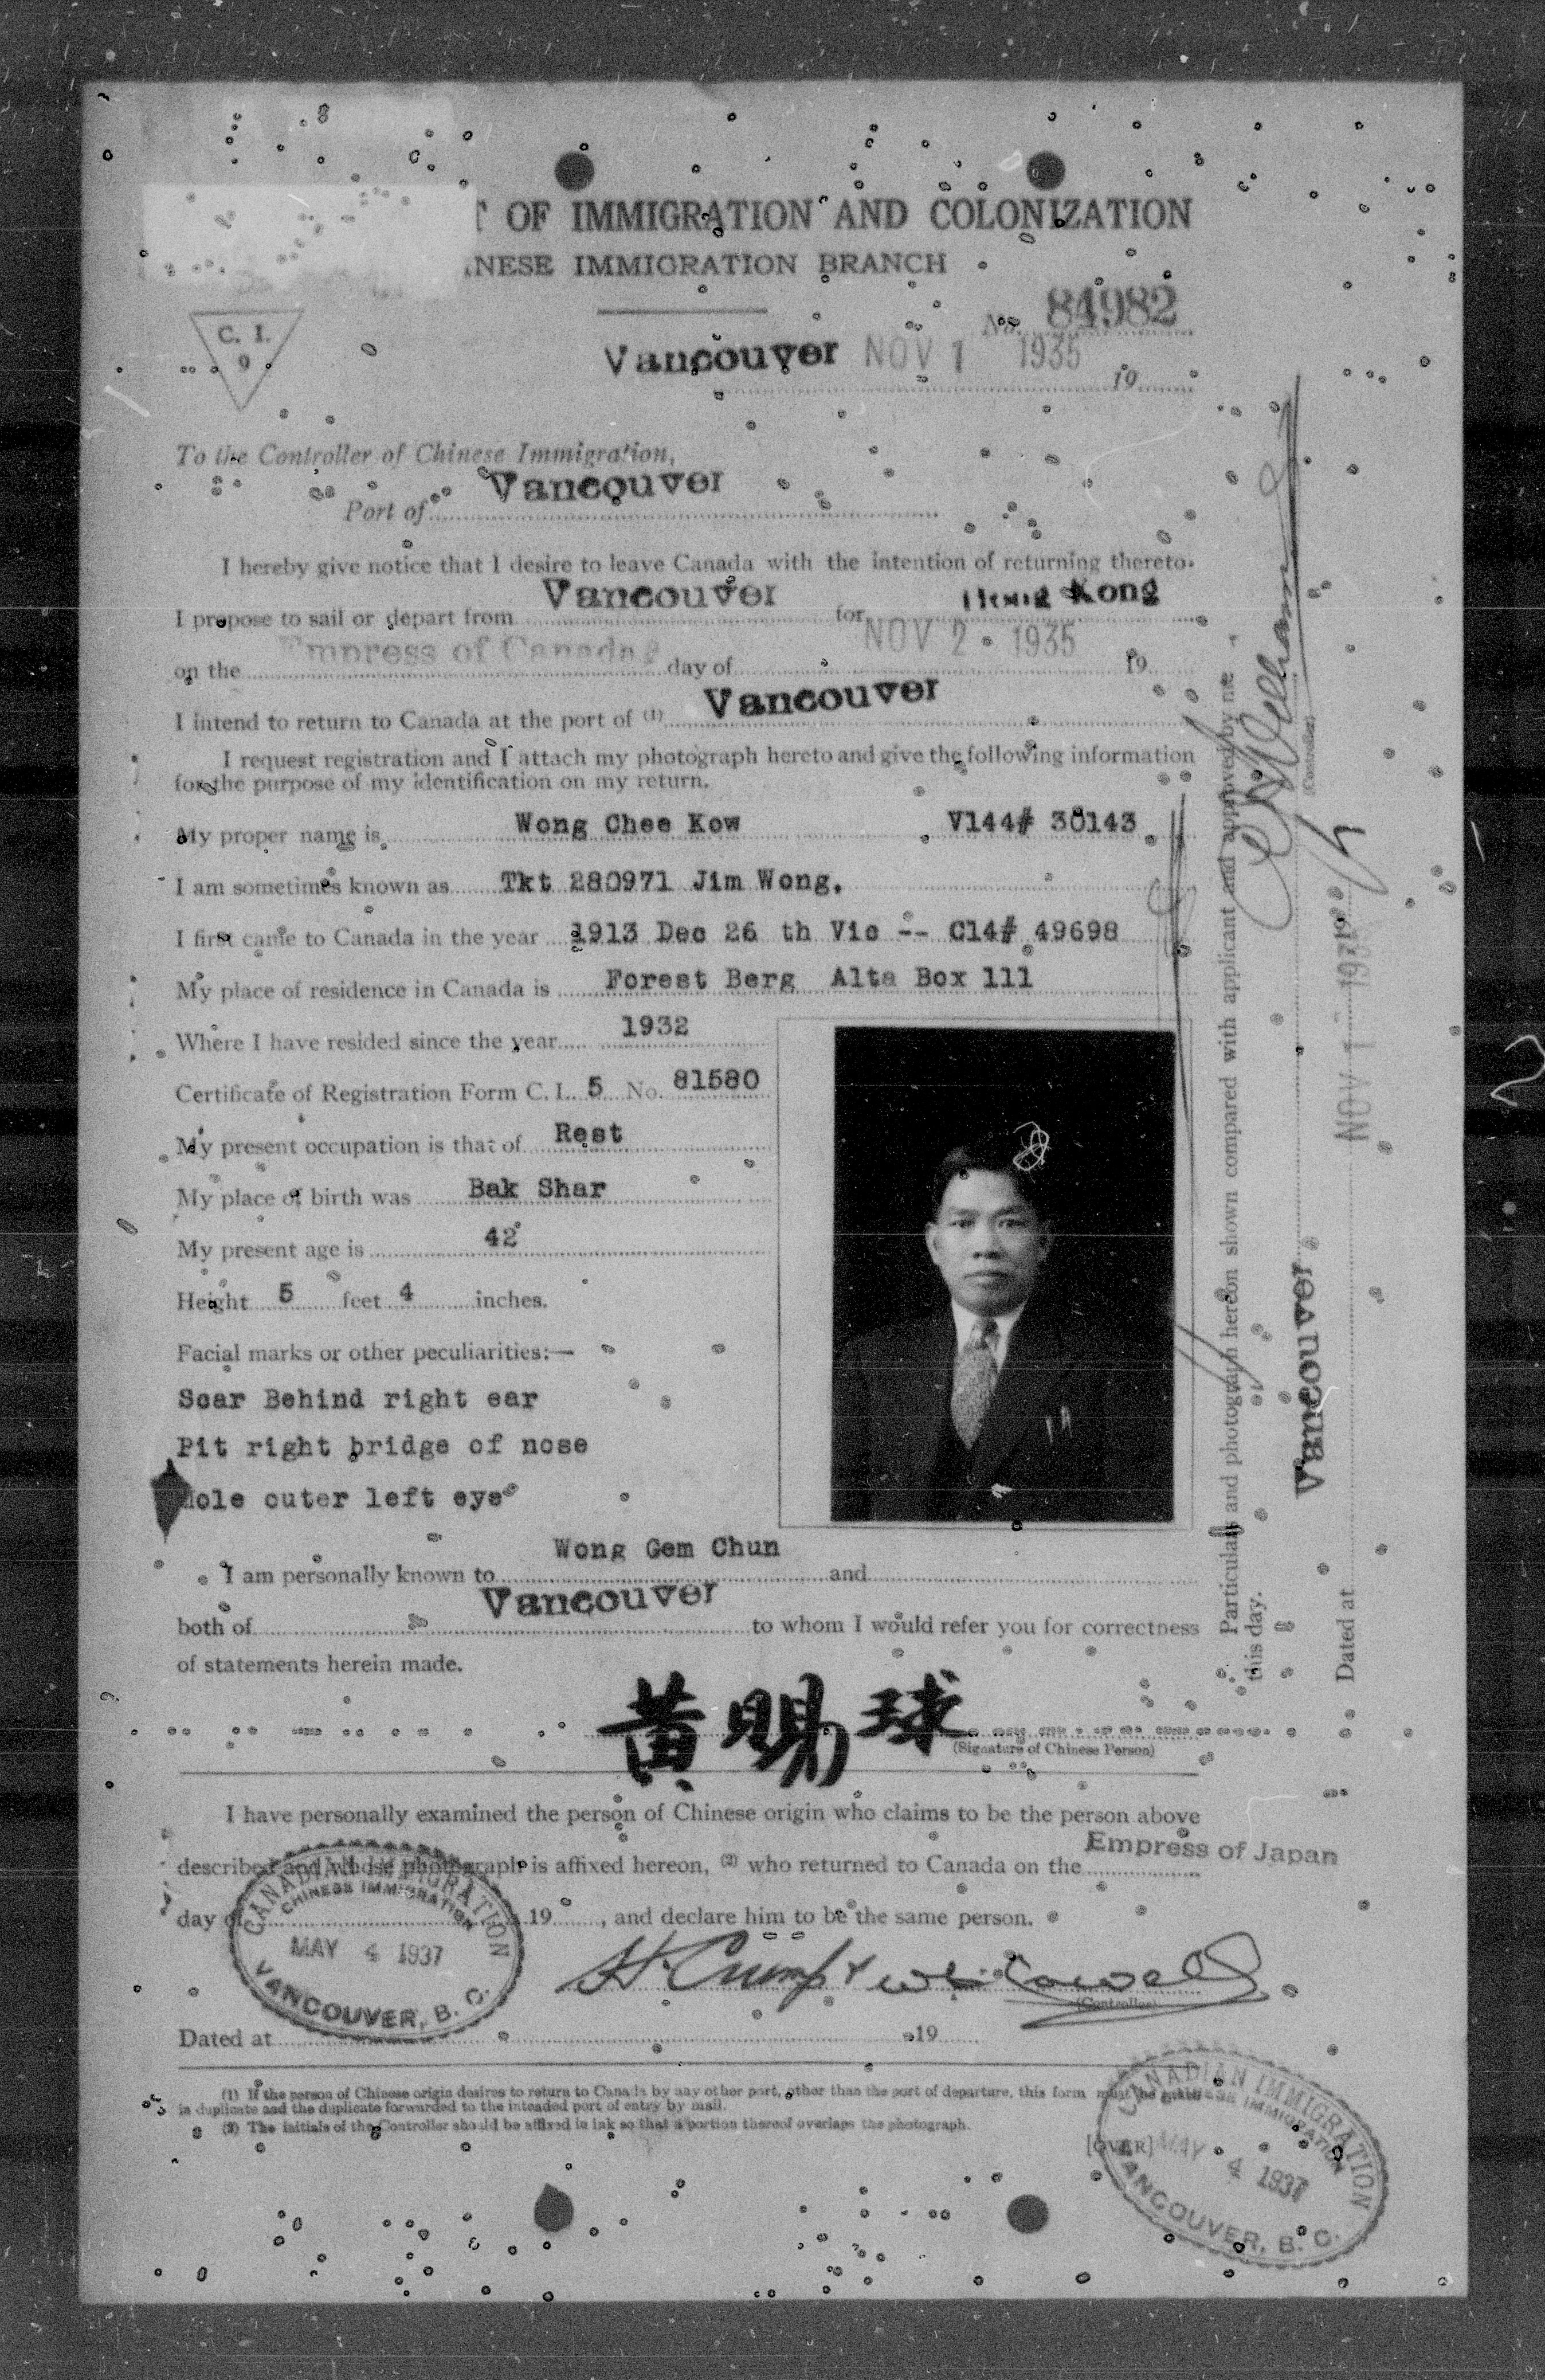 T OF IMMIGRATION AND COLONIZATION
NESE IMMIGRATION BRANCH
C. I.
9
No. 84982
Vancouver NOV 1 1935 19
To the Controller of Chinese Immigration,
Port of Vancouver
I hereby give notice that I desire to leave Canada with the intention of returning thereto.
I propose to sail or depart from Vancouver for Hong Kong
on the Empress of Canada day of NOV 2 - 1935 19
I intend to return to Canada at the port of (1) Vancouver
I request registration and I attach my photograph hereto and give the following information
for the purpose of my identification on my return.
My proper name is Wong Chee Kow V144# 30143
I am sometimes known as Tkt 280971 Jim Wong.
I first came to Canada in the year 1913 Dec 26 th Vic -- C14# 49698
My place of residence in Canada is Forest Berg Alta Box 111
Where I have resided since the year 1932
Certificate of Registration Form C. I. 5 No. 81580
My present occupation is that of Rest
My place of birth was Bak Shar
My present age is 42
Height 5 feet 4 inches.
Facial marks or other peculiarities:—
Scar Behind right ear
Pit right bridge of nose
Mole outer left eye
I am personally known to Wong Gem Chun and
both of Vancouver to whom I would refer you for correctness
of statements herein made.
黃賜球
(Signature of Chinese Person)
I have personally examined the person of Chinese origin who claims to be the person above
described and whose photograph is affixed hereon, (2) who returned to Canada on the Empress of Japan
day of 19 , and declare him to be the same person.
CANADIAN IMMIGRATION
CHINESE IMMIGRATION
MAY 4 1937
VANCOUVER, B. C.
(Controller)
Dated at 19
(1) If the person of Chinese origin desires to return to Canada by any other port, other than the port of departure, this form must be made
in duplicate and the duplicate forwarded to the intended port of entry by mail.
(2) The initials of the Controller should be affixed in ink so that a portion thereof overlaps the photograph.
[OVER]
CANADIAN IMMIGRATION
CHINESE IMMIGRATION
MAY 4 1937
VANCOUVER, B. C.
Particulars and photograph hereon shown compared with applicant and approved by me
this day.
(Controller)
Dated at Vancouver NOV 1 1935 19
2